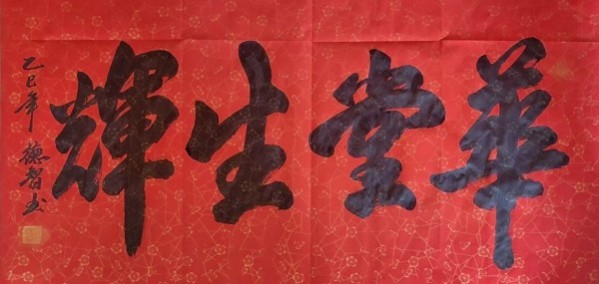 華堂生輝
乙巳年 德智书